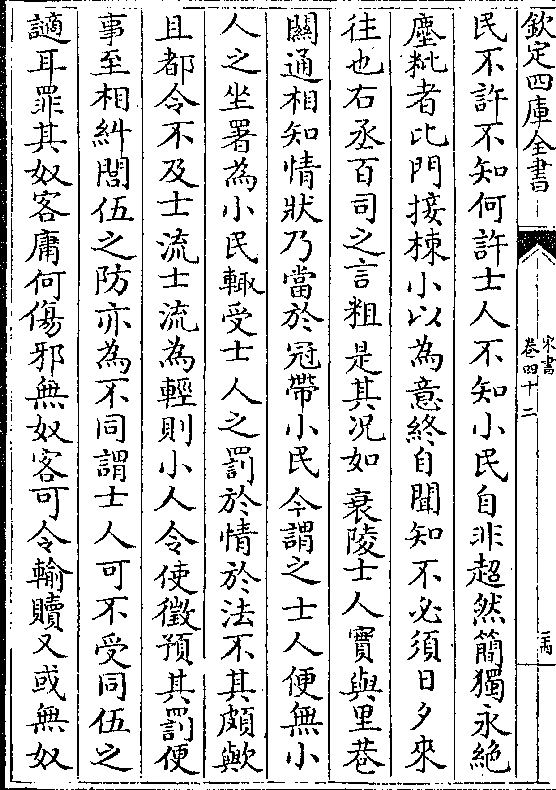 欽定四庫全書
宋書
卷四十二
民不許不知何許士人不知小民自非超然簡獨永絶
塵粃者比門接棟小以為意終自聞知不必須日夕來
往也右丞百司之言粗是其况如衰陵士人實與里巷
關通相知情狀乃當於冠帶小民今謂之士人便無小
人之坐署為小民輙受士人之罰於情於法不其頗歟
且都令不及士流士流為輕則小人令使徵預其罰便
事至相糾閭伍之防亦為不同謂士人可不受同伍之
謫耳罪其奴客庸何傷邪無奴客可令輸贖又或無奴